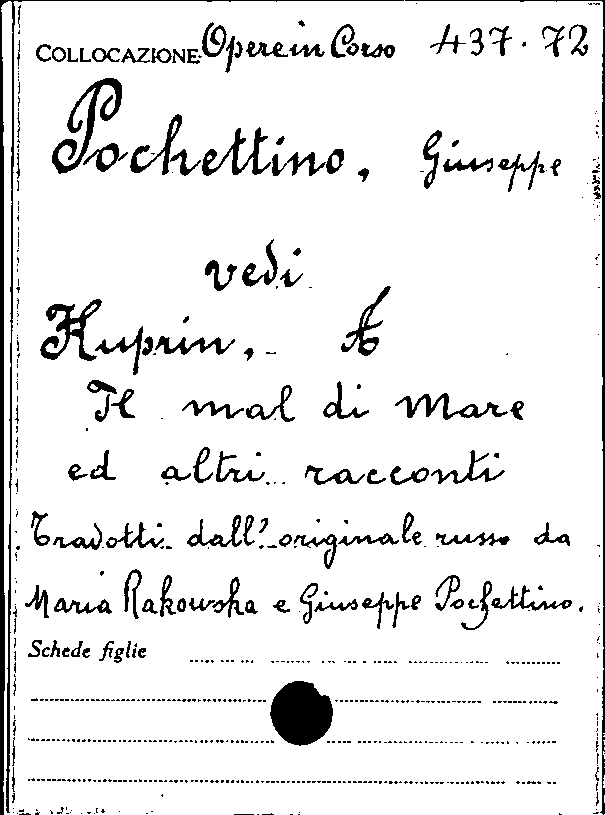 COLLOCAZIONE: Opere in Corso 437.72
Pochettino, Giuseppe
vedi
Kuprin, A
Il mal di Mare
ed altri racconti
Tradotti dall'originale russo da
Maria Rakowska e Giuseppe Pochettino.
Schede figlie